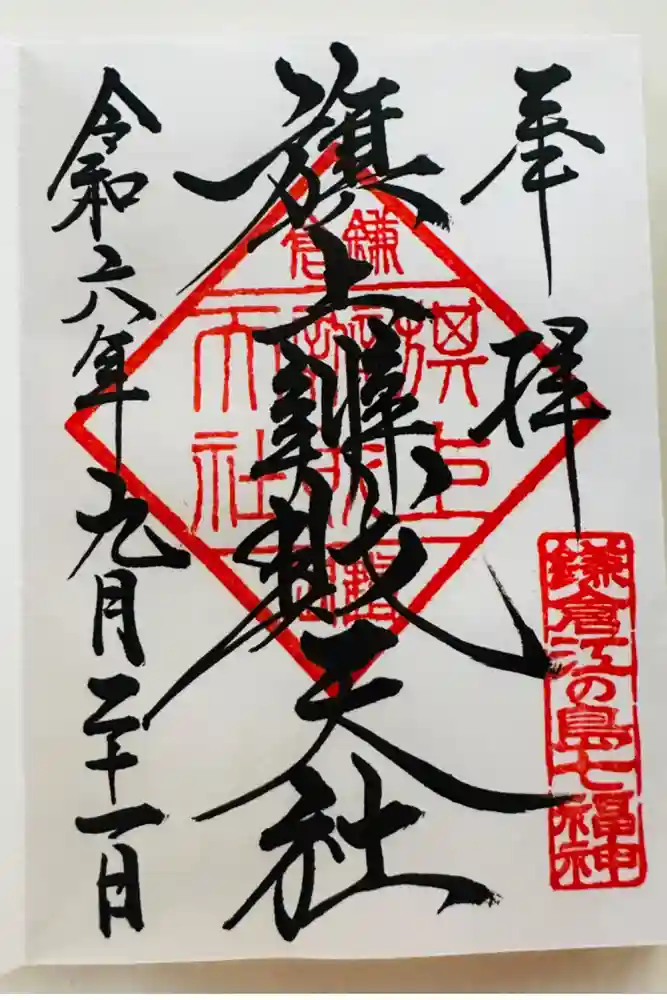 奉拝
鎌倉江の島七福神
旗上辨財天社
鎌倉
旗上
天社
令和六年九月二十一日